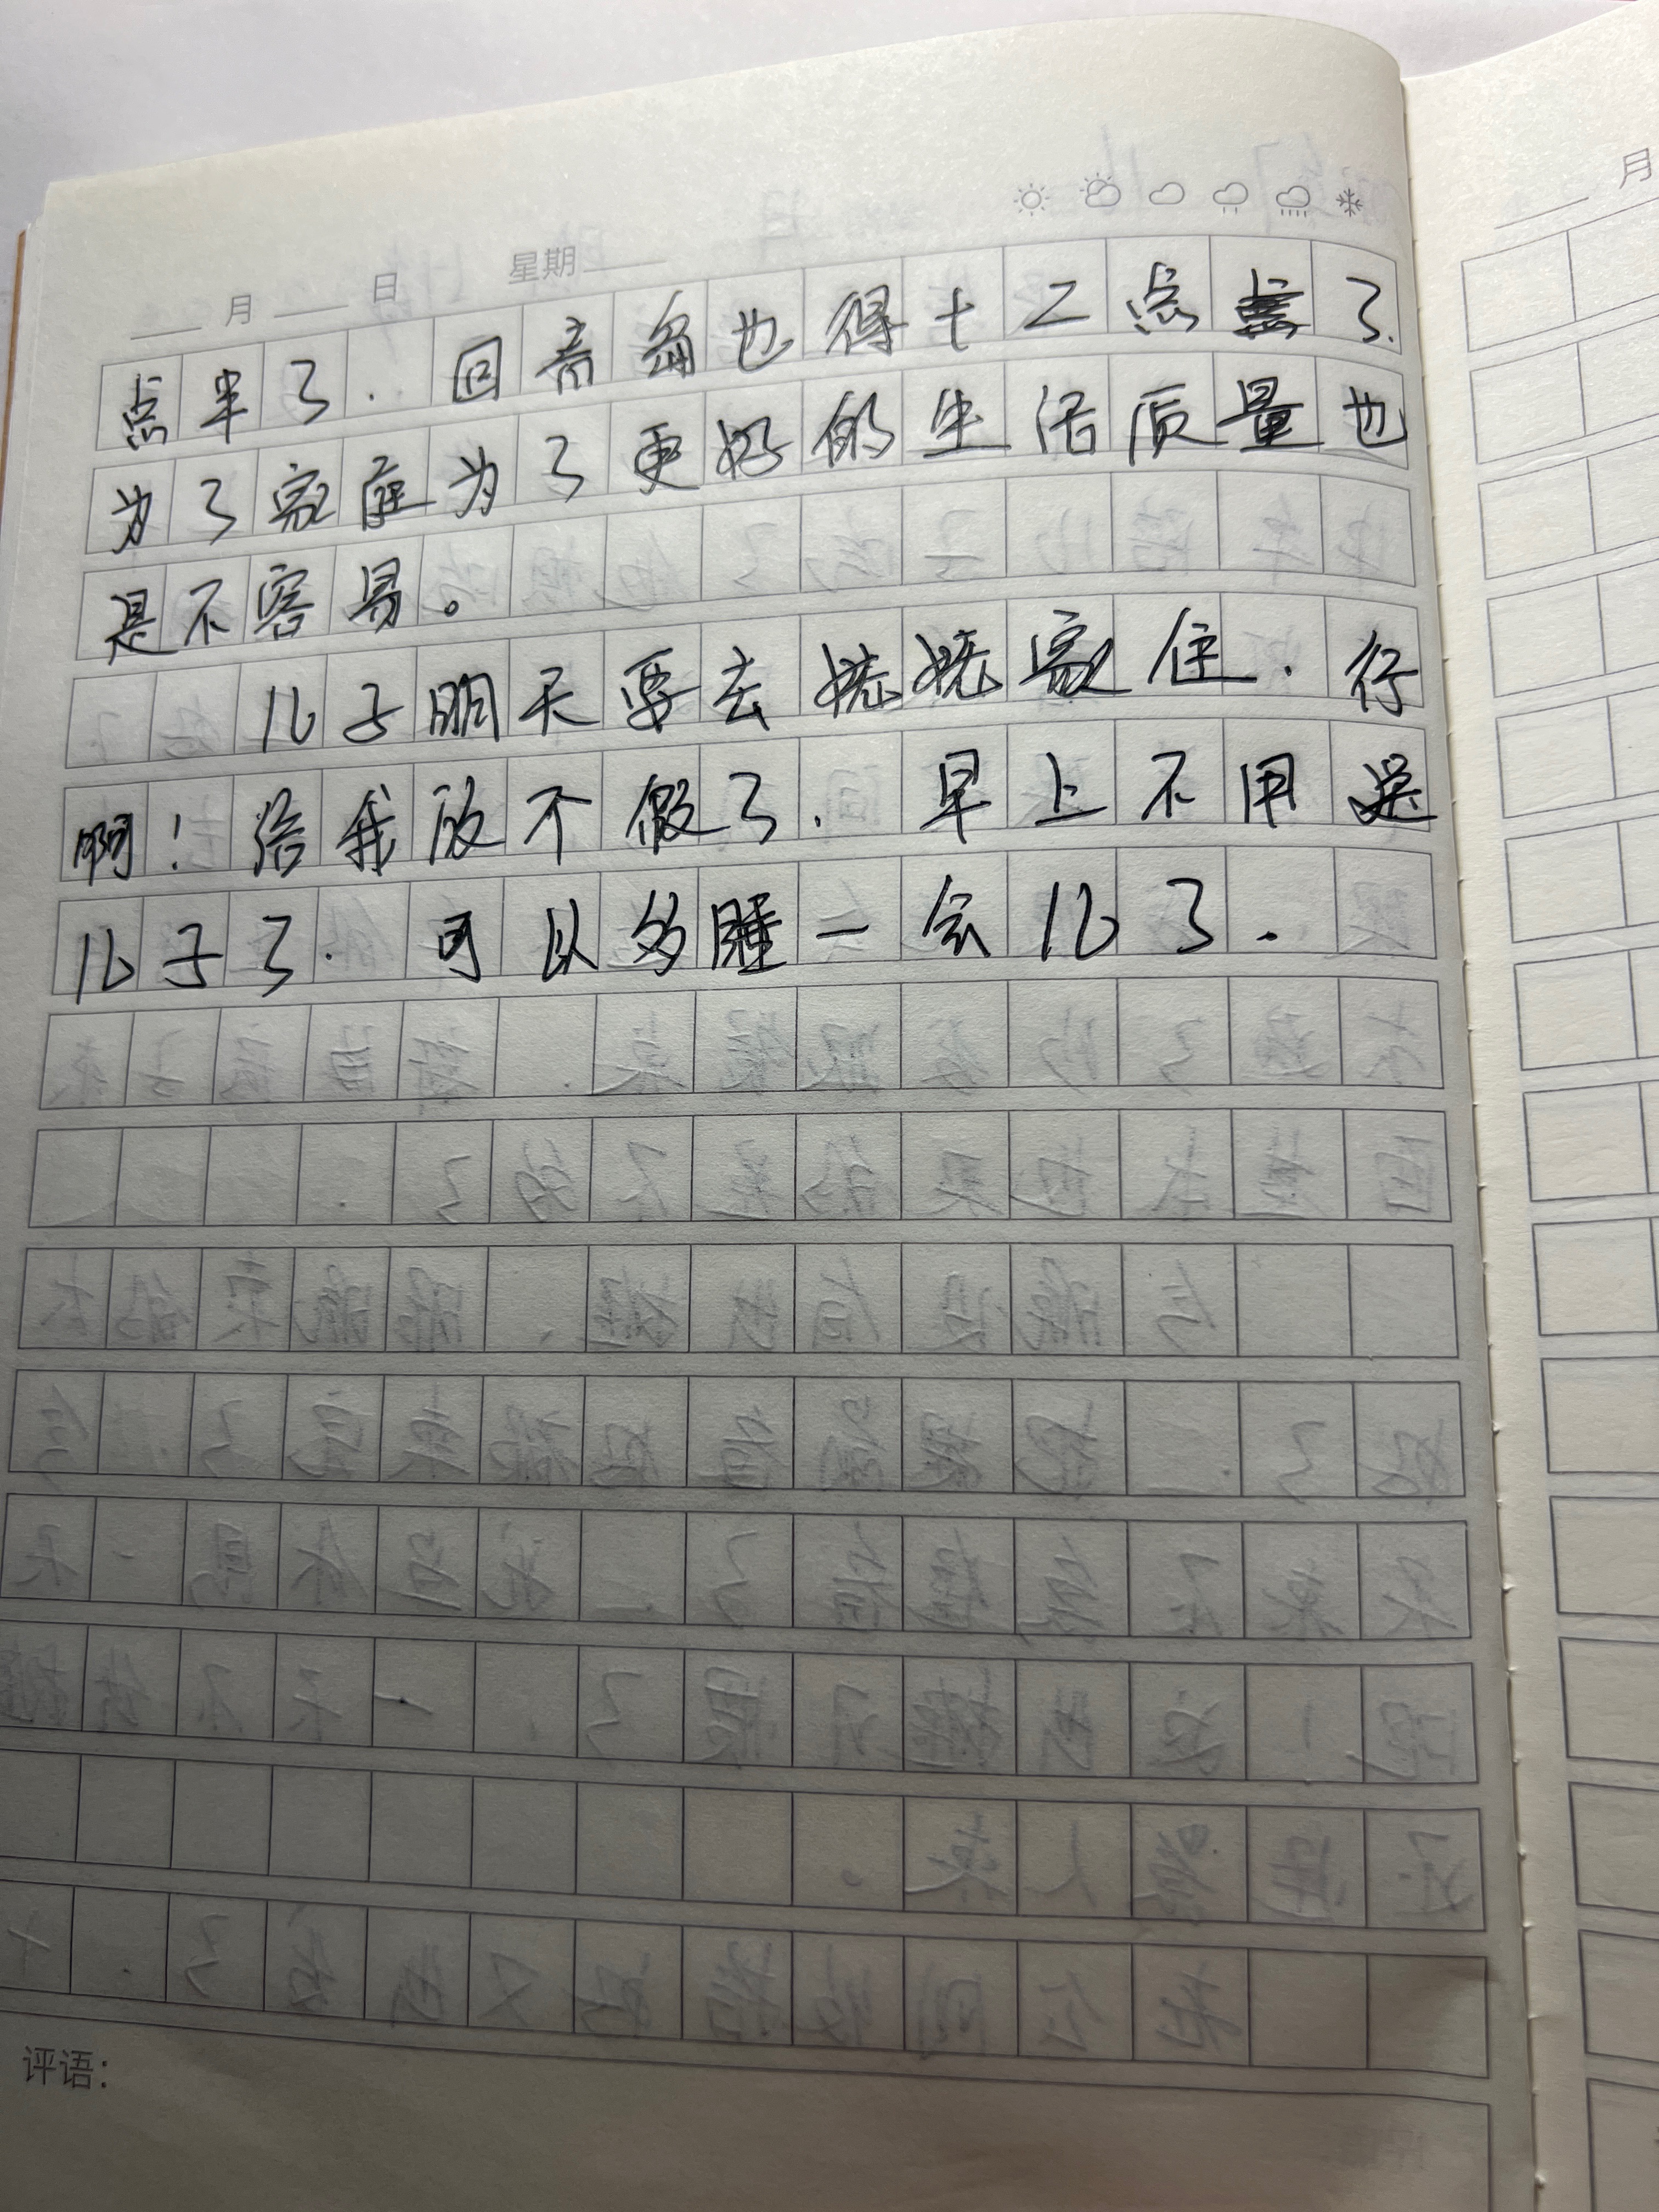 月 日 星期
月
点半了.回奇岛也得十二点了.
为了家庭为了更好的生活质量也
是不容易。
儿子明天要去姥姥家住.行
啊!给我放不假了.早上不用送
儿子了.可以多睡一会儿了.
评语: